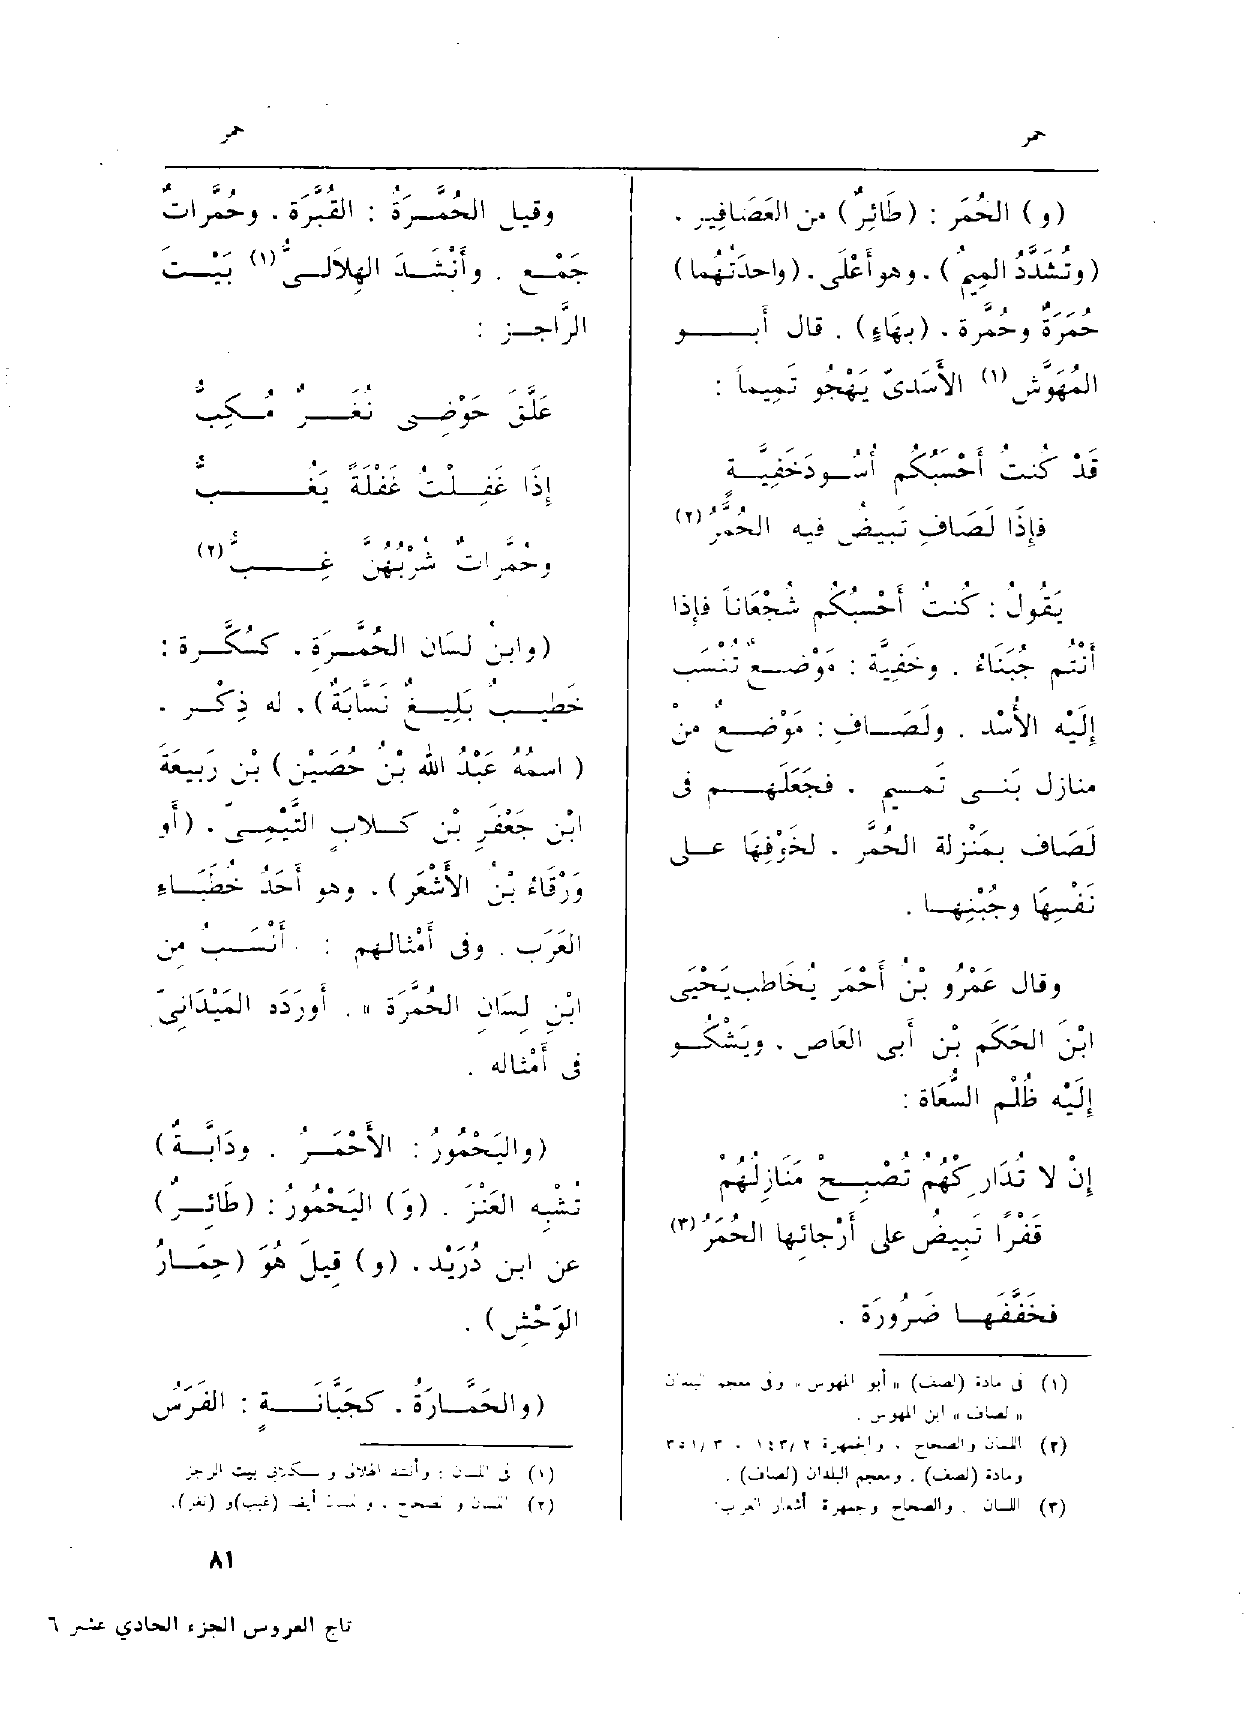 حمر
حمر
(و) الحُمَر : (طَائِرٌ) من العَصَافِير .
(وتُشَدَّدُ المِيمُ) ، وهو أَعْلَى ، (واحدَتُهُما)
حُمَرَةٌ وحُمَّرة ، (بِهَاءٍ) . قال أَبـــو
المُهَوَّش (١) الأَسَدِىّ يَهْجُو تَمِيماً :
قَدْ كُنتُ أَحْسَبُكُم أُسُـودَ خَفِيَّـةٍ
فإِذَا لَصَافِ تَبِيضُ فيه الحُمَّرُ (٢)
يَقُولُ : كُنتُ أَحْسِبُكُم شُجْعَاناً فإِذا
أَنْتُم جُبَنَاءُ . وخَفِيَّة : مَوْضـعٌ تُنْسَب
إِلَيْهِ الأُسْد . ولَصَـاف : مَوْضـعٌ من
منازل بَنـى تَمـيم . فجَعَلَهـم فى
لَصَاف بمَنْزِلة الحُمَّر . لخَوْفِهَا عـلى
نَفْسِهَا وجُبْنِهـا .
وقال عَمْرُو بْنُ أَحْمَر يُخَاطب يَحْيَى
ابْنَ الحَكَم بْن أَبى العَاص . ويَشْكُـو
إِلَيْه ظُلْم السُّعَاة :
إِنْ لا تُدَارِكْهُمُ تُصْبِـحْ مَنَازِلُهُمْ
قَفْرًا تَبِيضُ على أَرْجائِها الحُمَرُ (٣)
فخَفَّفَهـا ضَرُورَة .
(١) فى مادة (لصف) « أبو المهوس » وفى معجم البلدان
« لصاف » ابن المهوس .
(٢) اللسان والصحاح ، والجمهرة ١٤٣/٢ ،
ومادة (لصف) ، ومعجم البلدان (لصاف) .
(٣) اللسان . والصحاح وجمهرة أشعار العرب
وقيـل الحُمَّـرَةُ : القُبَّرَة ، وحُمَّرات
جَمْـع . وأَنْشَـدَ الهِلَالـىُّ (١) بَيْـتَ
الرَّاجـز :
عَلَّقَ حَوْضِـى نُغَـرٌ مُـكِبُّ
إِذَا غَفِـلْتُ غَفْلَةً يَغُـــبُّ
وحُمَّراتٌ شُرْبُهُنَّ غِــبُّ (٢)
(وابنُ لسَان الحُمَّـرَة ، كسُكَّـرة :
خَطِيـبٌ بَلِيـغٌ نَسَّابَةٌ) ، له ذِكْـر .
( اسمُهُ عَبْدُ اللهِ بْنُ حُصَيْن) بْن رَبِيعَةَ
ابْنِ جَعْفَر بْن كـلاب التَّيْمـىّ ، (أَو
وَرْقَاءُ بْنُ الأَشْعَر) ، وهو أَحَدُ خُطَبَـاءِ
العَرَب . وفى أَمْثالهم : أَنْسَـبُ من
ابْن لِسَانِ الحُمَّرَة » . أَورَدَه المَيْدَانِىّ
فى أَمْثاله .
(واليَحْمُورُ : الأَحْمَـرُ . ودَابَّـةٌ)
تُشْبِه العَنْز . (وَ) اليَحْمُورُ : (طَائِـرٌ)
عن ابن دُرَيْد . (و) قِيلَ هُوَ (حِمَـارُ
الوَحْش) .
(والحَمَّـارَةُ ، كجَبَّانَــةٍ : الفَرَسُ
(١) فى اللسان : وأنشد الهلالى والكلابى بيت الراجز
(٢) اللسان والصحاح ، (غبب) و (نغر).
٨١
تاج العروس الجزء الحادي عشر ٦